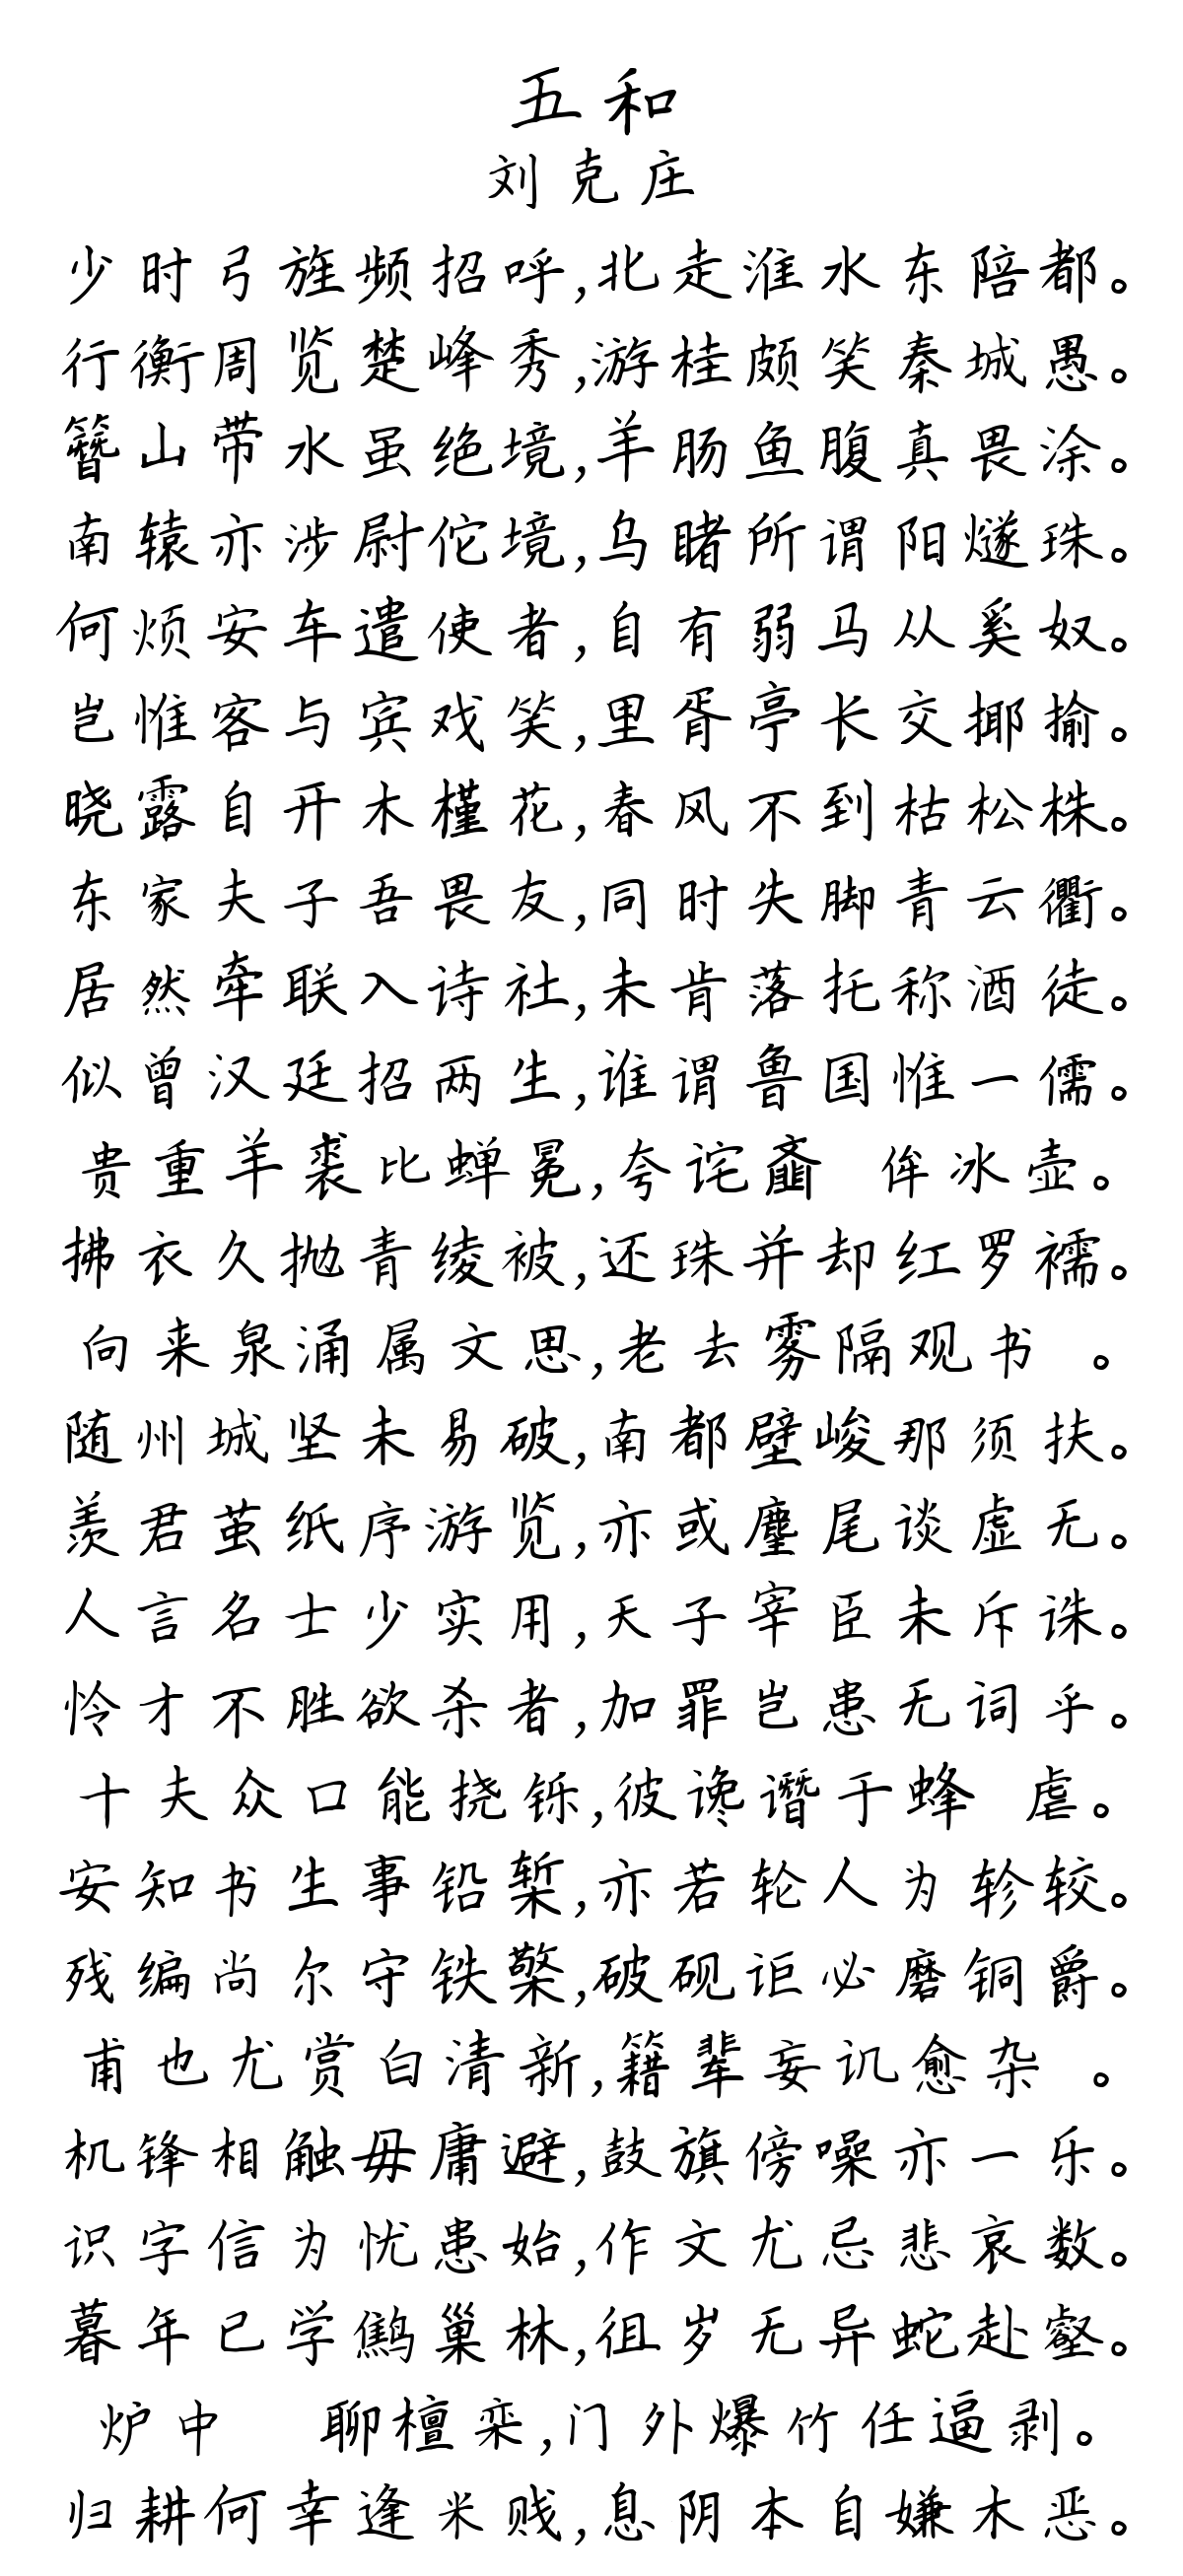 五和
刘克庄
少时弓旌频招呼,北走淮水东陪都。
行衡周览楚峰秀,游桂颇笑秦城愚。
簪山带水虽绝境,羊肠鱼腹真畏涂。
南辕亦涉尉佗境,乌睹所谓阳燧珠。
何烦安车遣使者,自有弱马从奚奴。
岂惟客与宾戏笑,里胥亭长交揶揄。
晓露自开木槿花,春风不到枯松株。
东家夫子吾畏友,同时失脚青云衢。
居然牵联入诗社,未肯落托称酒徒。
似曾汉廷招两生,谁谓鲁国惟一儒。
贵重羊裘比蝉冕,夸诧齑 侔冰壶。
拂衣久抛青绫被,还珠并却红罗襦。
向来泉涌属文思,老去雾隔观书 。
随州城坚未易破,南都壁峻那须扶。
羡君茧纸序游览,亦或麈尾谈虚无。
人言名士少实用,天子宰臣未斥诛。
怜才不胜欲杀者,加罪岂患无词乎。
十夫众口能挠铄,彼谗谮于蜂 虐。
安知书生事铅椠,亦若轮人为轸较。
残编尚尔守铁檠,破砚讵必磨铜爵。
甫也尤赏白清新,籍辈妄讥愈杂 。
机锋相触毋庸避,鼓旗傍噪亦一乐。
识字信为忧患始,作文尤忌悲哀数。
暮年已学鹪巢林,徂岁无异蛇赴壑。
炉中  聊檀栾,门外爆竹任逼剥。
归耕何幸逢米贱,息阴本自嫌木恶。